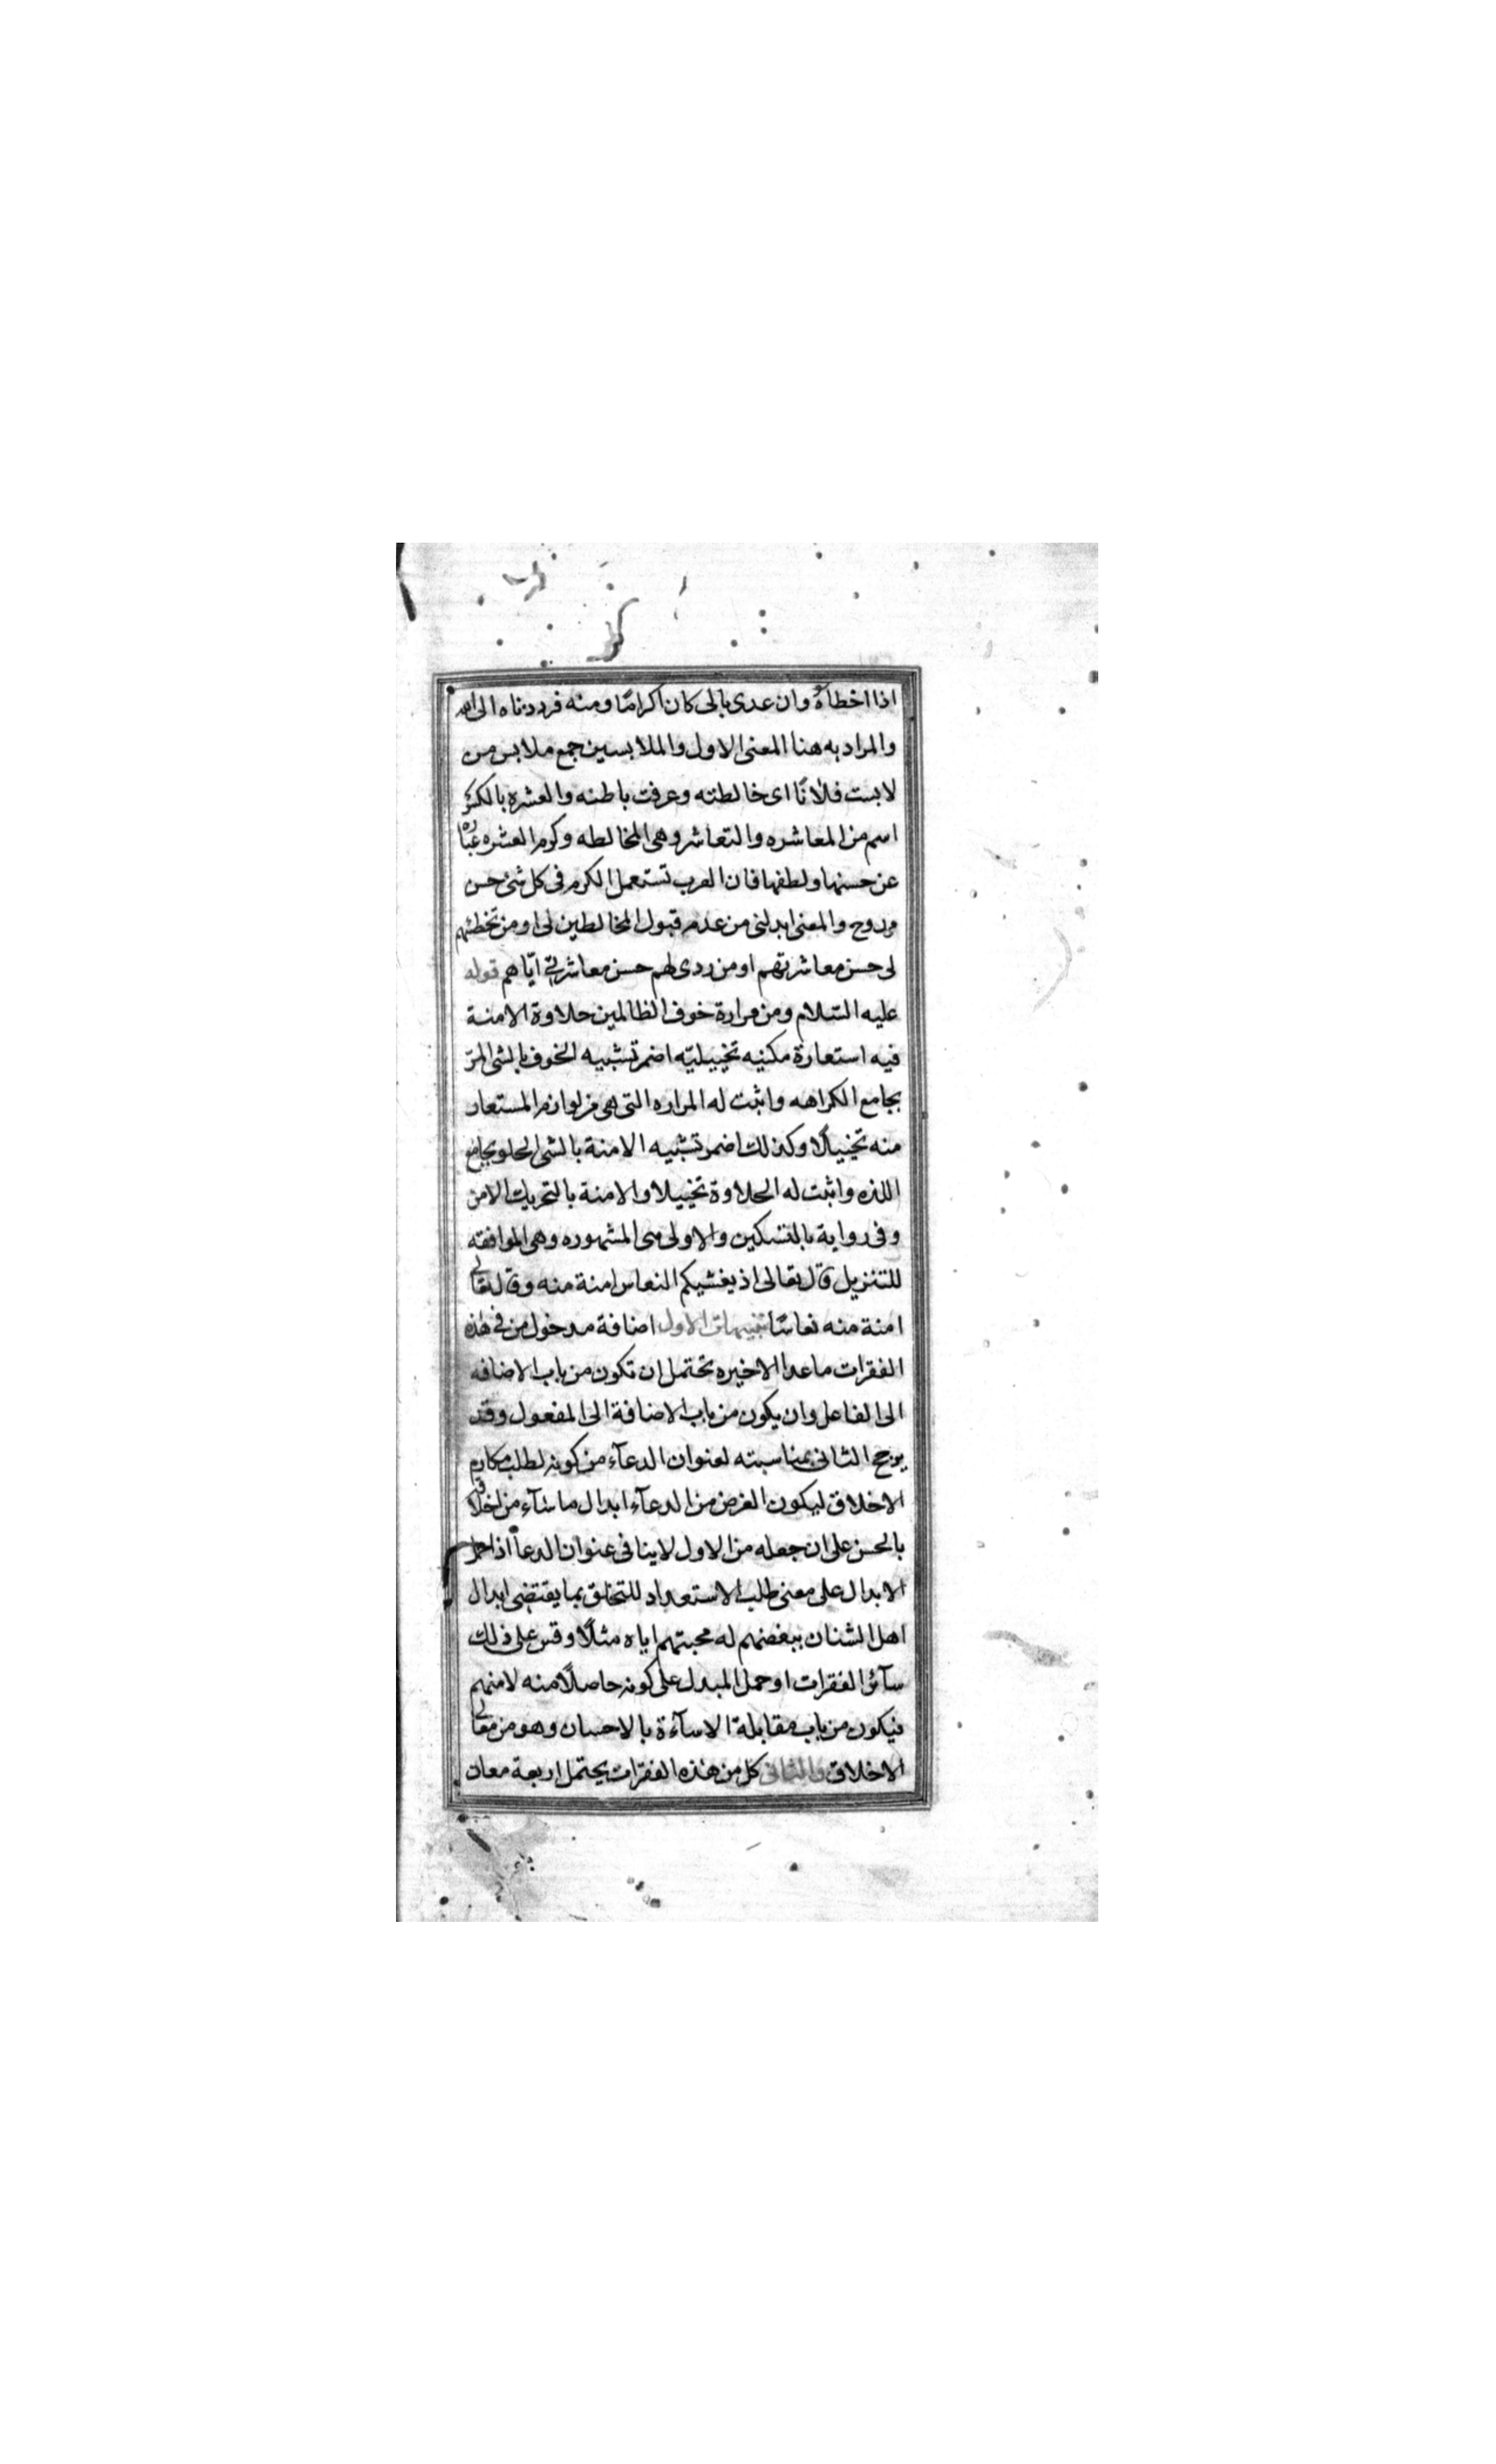 اذا اخطاه وان عدى بالى كان اكرامًا ومنه فرددناه الى امه
والمراد به هنا المعنى الاول والملابسين جمع ملابس من
لابست فلانًا اى خالطته وعرفت باطنه والعشره بالكسر
اسم من المعاشره والتعاشر وهى المخالطه وكرم العشره عباره
عن حسنها ولطفها فان العرب تستعمل الكرم فى كل شئ حسن
والمعنى ابدلنى من عدم قبول المخالطين لى او من تخطئهم
لى حسن معاشرتهم او من ردى لهم حسن معاشرتى ايّاهم قوله
عليه السّلام ومن مرارة خوف الظالمين حلاوة الامنة
فيه استعارة مكنيه تخييليّه اضمر تشبيه الخوف بالشى المرّ
بجامع الكراهه واثبت له المراره التى هى من لوازم المستعار
منه تخييلًا وكذلك اضمر تشبيه الامنة بالشى الحلو بجامع
اللذه واثبت له الحلاوة تخييلا والامنة بالتحريك الامن
وفى رواية بالتسكين والاولى هى المشهوره وهى الموافقه
للتنزيل قال تعالى اذ يغشيكم النعاس امنة منه وقال تعالى
امنة منه نعاسًا تنبيهات الاول اضافة مدخول من فى هذه
الفقرات ماعدا الاخيره تحتمل ان تكون من باب الاضافه
الى الفاعل وان يكون من باب الاضافة الى المفعول وقد
يرجح الثانى بمناسبته لعنوان الدعآء من كونه لطلب مكارم
الاخلاق ليكون الغرض من الدعآء ابدال ماسآء من اخلاقه
بالحسن على ان جعله من الاول لاينافى عنوان الدعآ اذا حمل
الابدال على معنى طلب الاستعداد للتخلق بما يقتضى ابدال
اهل الشنان ببغضهم له محبتهم اياه مثلًا وقس على ذلك
سآئر الفقرات او حمل المبدل على كونه حاصلًا منه لا منهم
فيكون من باب مقابلة الاسآءة بالاحسان وهو من معالى
الاخلاق والثانى كل من هذه الفقرات يحتمل اربعة معان